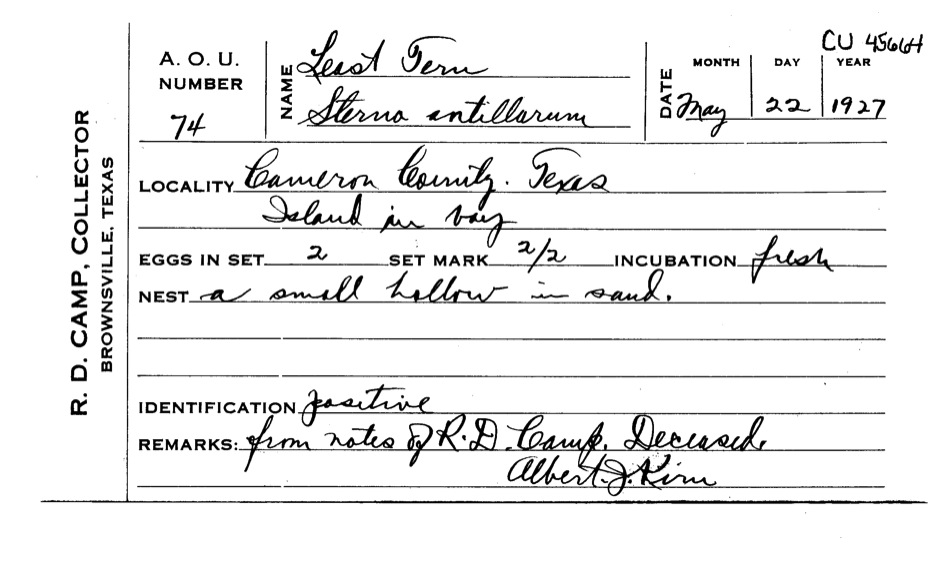 CU 45664
A. O. U. NUMBER 74
NAME Least Tern
Sterna antillarum
DATE MONTH May DAY 22 YEAR 1927
R. D. CAMP, COLLECTOR
BROWNSVILLE, TEXAS
LOCALITY Cameron County. Texas
Island in bay
EGGS IN SET 2 SET MARK 2/2 INCUBATION fresh
NEST a small hollow in sand.
IDENTIFICATION positive
REMARKS: from notes of R. D. Camp. Deceased.
Albert J. Kirn